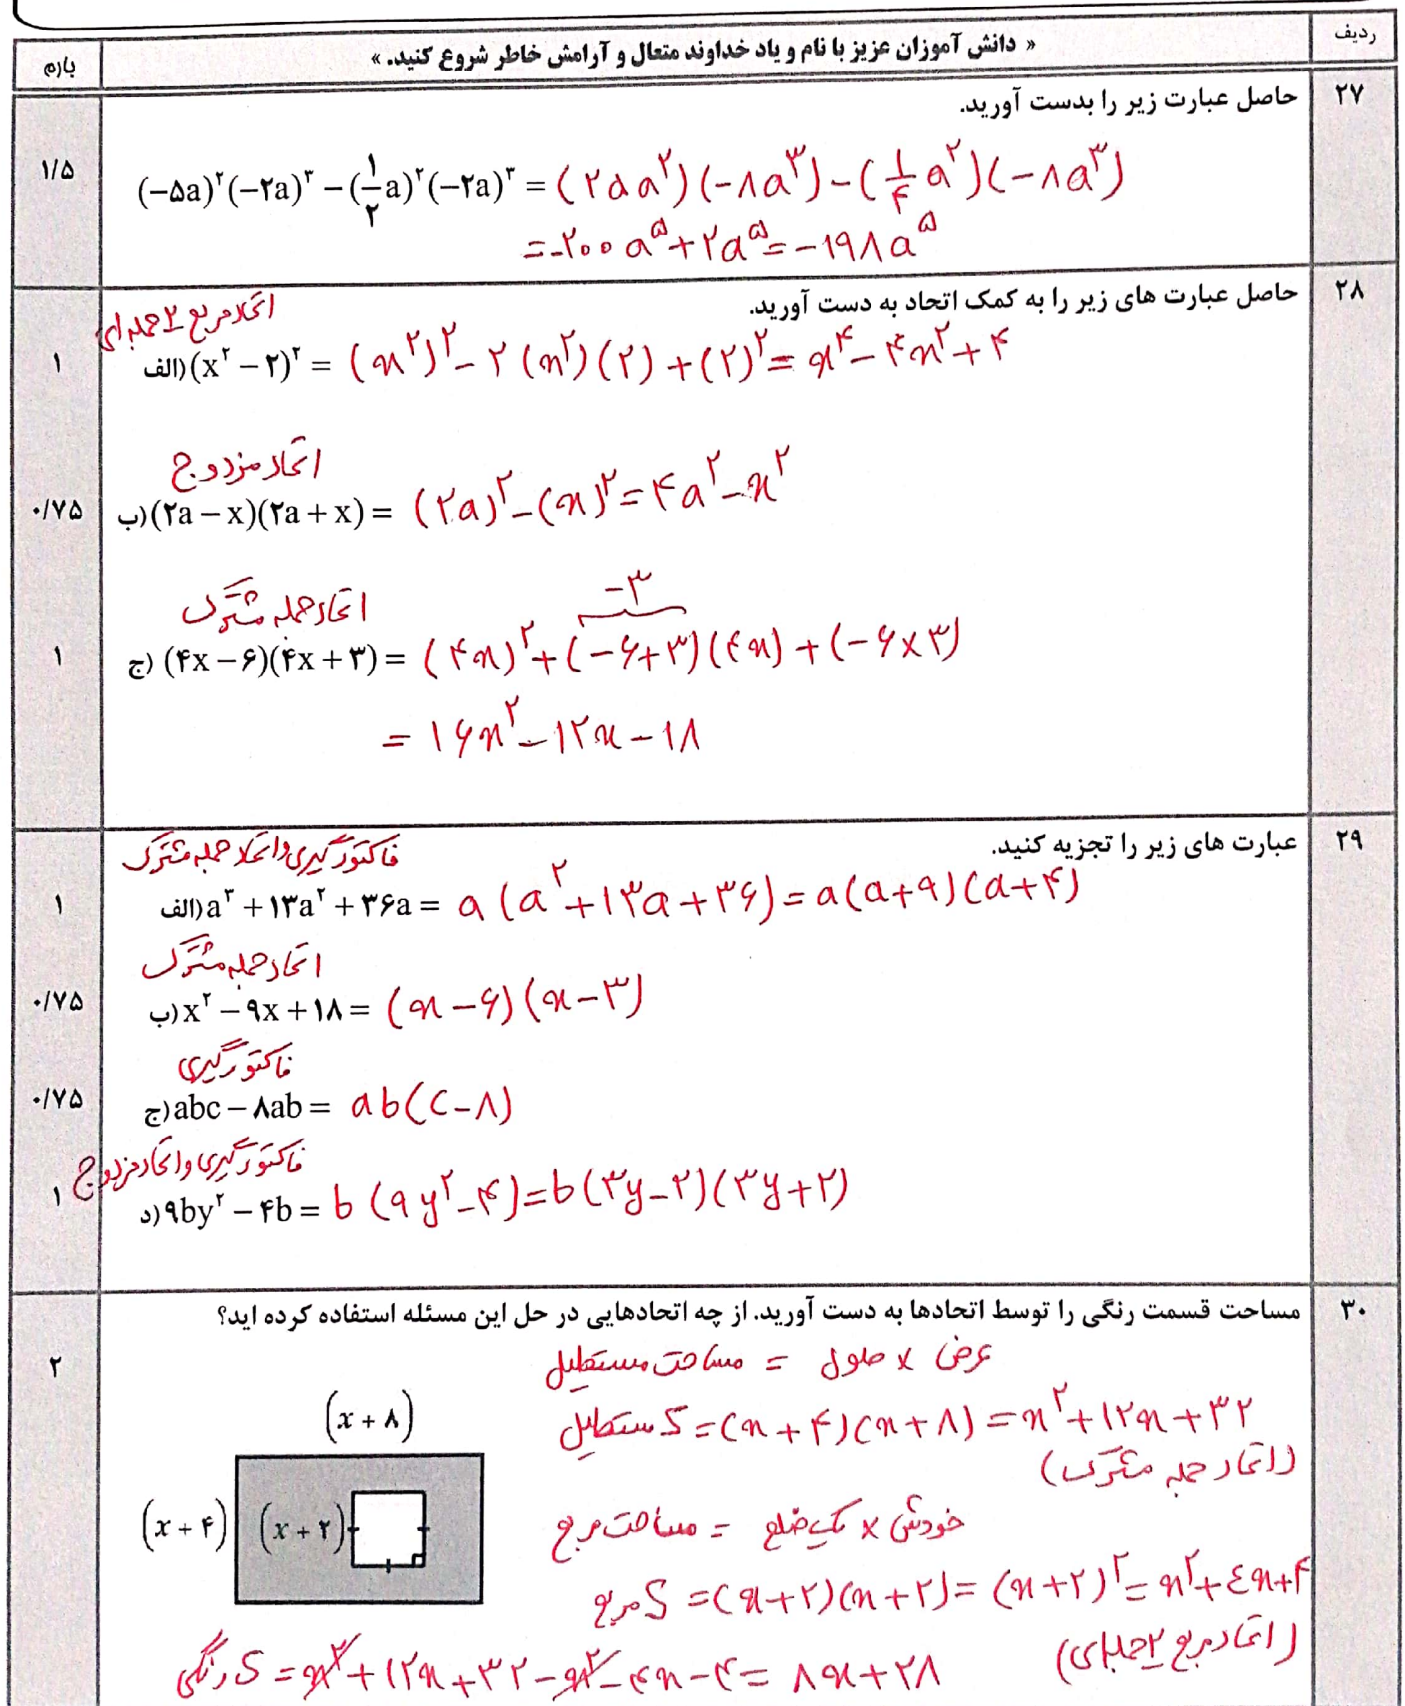 ردیف
« دانش آموزان عزیز با نام و یاد خداوند متعال و آرامش خاطر شروع کنید. »
بارم
۲۷
حاصل عبارت زیر را بدست آورید.
۱/۵
(−۵a)²(−۲a)³ − (۱/۲ a)²(−۲a)³ = (۲۵a²)(−۸a³) − (۱/۴ a²)(−۸a³)
= −۲۰۰a⁵ + ۲a⁵ = −۱۹۸a⁵
۲۸
حاصل عبارت های زیر را به کمک اتحاد به دست آورید.
اتحاد مربع ۲ جمله ای
۱
الف) (x² − ۲)² = (x²)² − ۲(x²)(۲) + (۲)² = x⁴ − ۴x² + ۴
اتحاد مزدوج
۰/۷۵
ب) (۲a − x)(۲a + x) = (۲a)² − (x)² = ۴a² − x²
اتحاد جمله مشترک
−۳
۱
ج) (۴x − ۶)(۴x + ۳) = (۴x)² + (−۶+۳)(۴x) + (−۶×۳)
= ۱۶x² − ۱۲x − ۱۸
۲۹
عبارت های زیر را تجزیه کنید.
فاکتورگیری و اتحاد جمله مشترک
۱
الف) a³ + ۱۳a² + ۳۶a = a(a² + ۱۳a + ۳۶) = a(a+۹)(a+۴)
اتحاد جمله مشترک
۰/۷۵
ب) x² − ۹x + ۱۸ = (x − ۶)(x − ۳)
فاکتورگیری
۰/۷۵
ج) abc − ۸ab = ab(c − ۸)
فاکتورگیری و اتحاد مزدوج
۱
د) ۹by² − ۴b = b(۹y² − ۴) = b(۳y − ۲)(۳y + ۲)
۳۰
مساحت قسمت رنگی را توسط اتحادها به دست آورید. از چه اتحادهایی در حل این مسئله استفاده کرده اید؟
۲
عرض × طول = مساحت مستطیل
(x + ۸)
S مستطیل = (x + ۴)(x + ۸) = x² + ۱۲x + ۳۲
(اتحاد جمله مشترک)
(x + ۴)
(x + ۲)
خودش × یک ضلع = مساحت مربع
S مربع = (x+۲)(x+۲) = (x+۲)² = x² + ۴x + ۴
(اتحاد مربع ۲ جمله ای)
S رنگی = x² + ۱۲x + ۳۲ − x² − ۴x − ۴ = ۸x + ۲۸